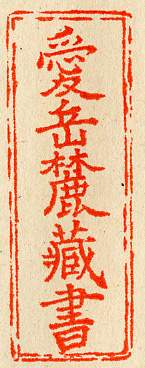 愛岳麓藏書